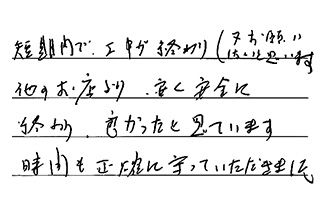 短期間で、工事が終わり(又お願い
したいと思います
他のお店より、安く安全に
終わり、良かったと思っています
時間も正確に守っていただきました